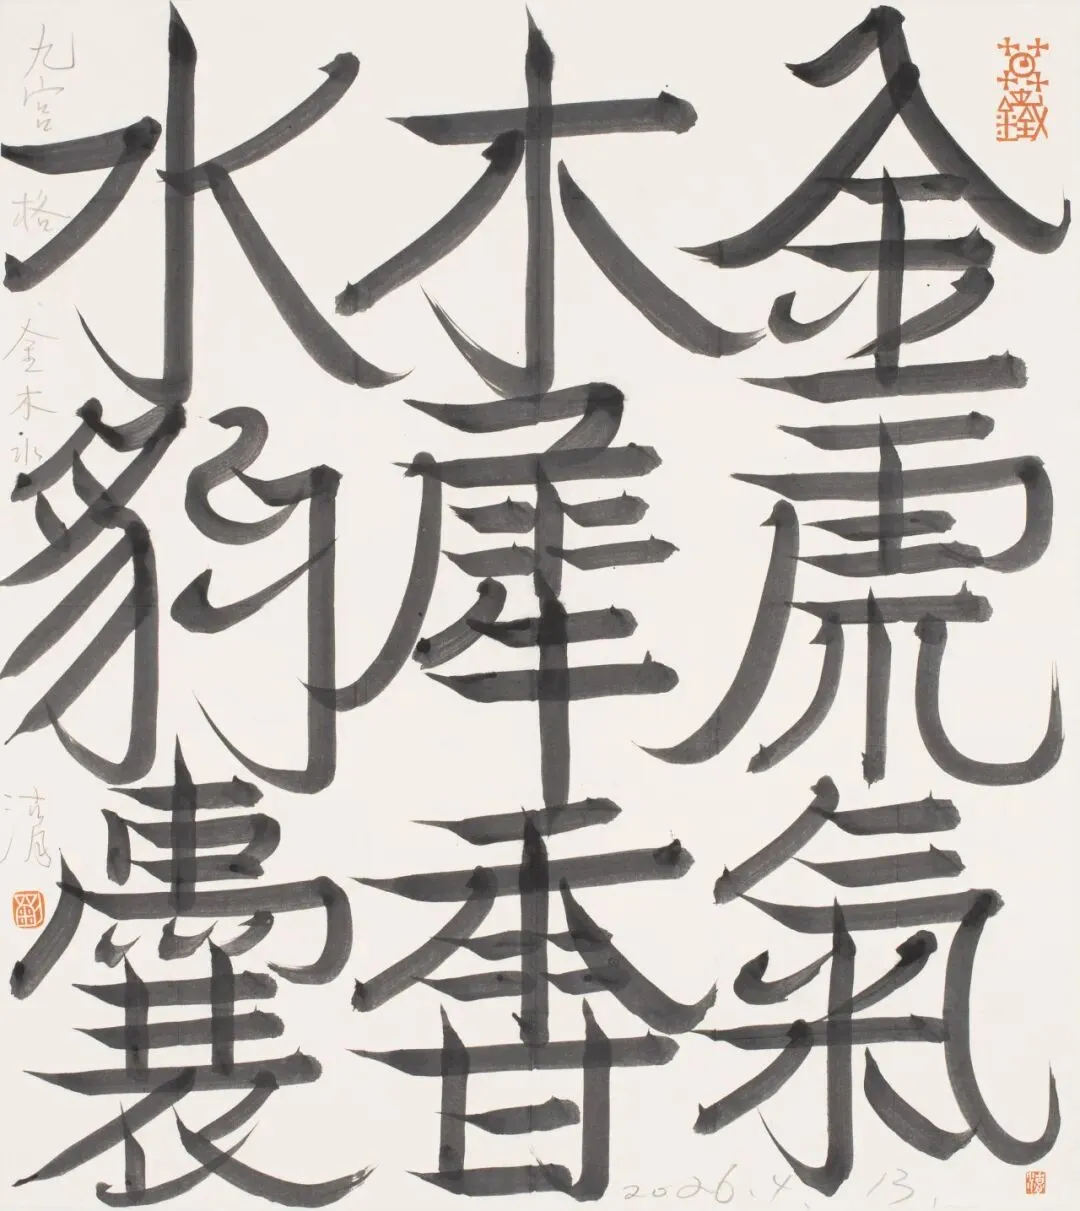 金虎氣
木犀香
水豹囊
九宫格、金木水
2026.4.13.